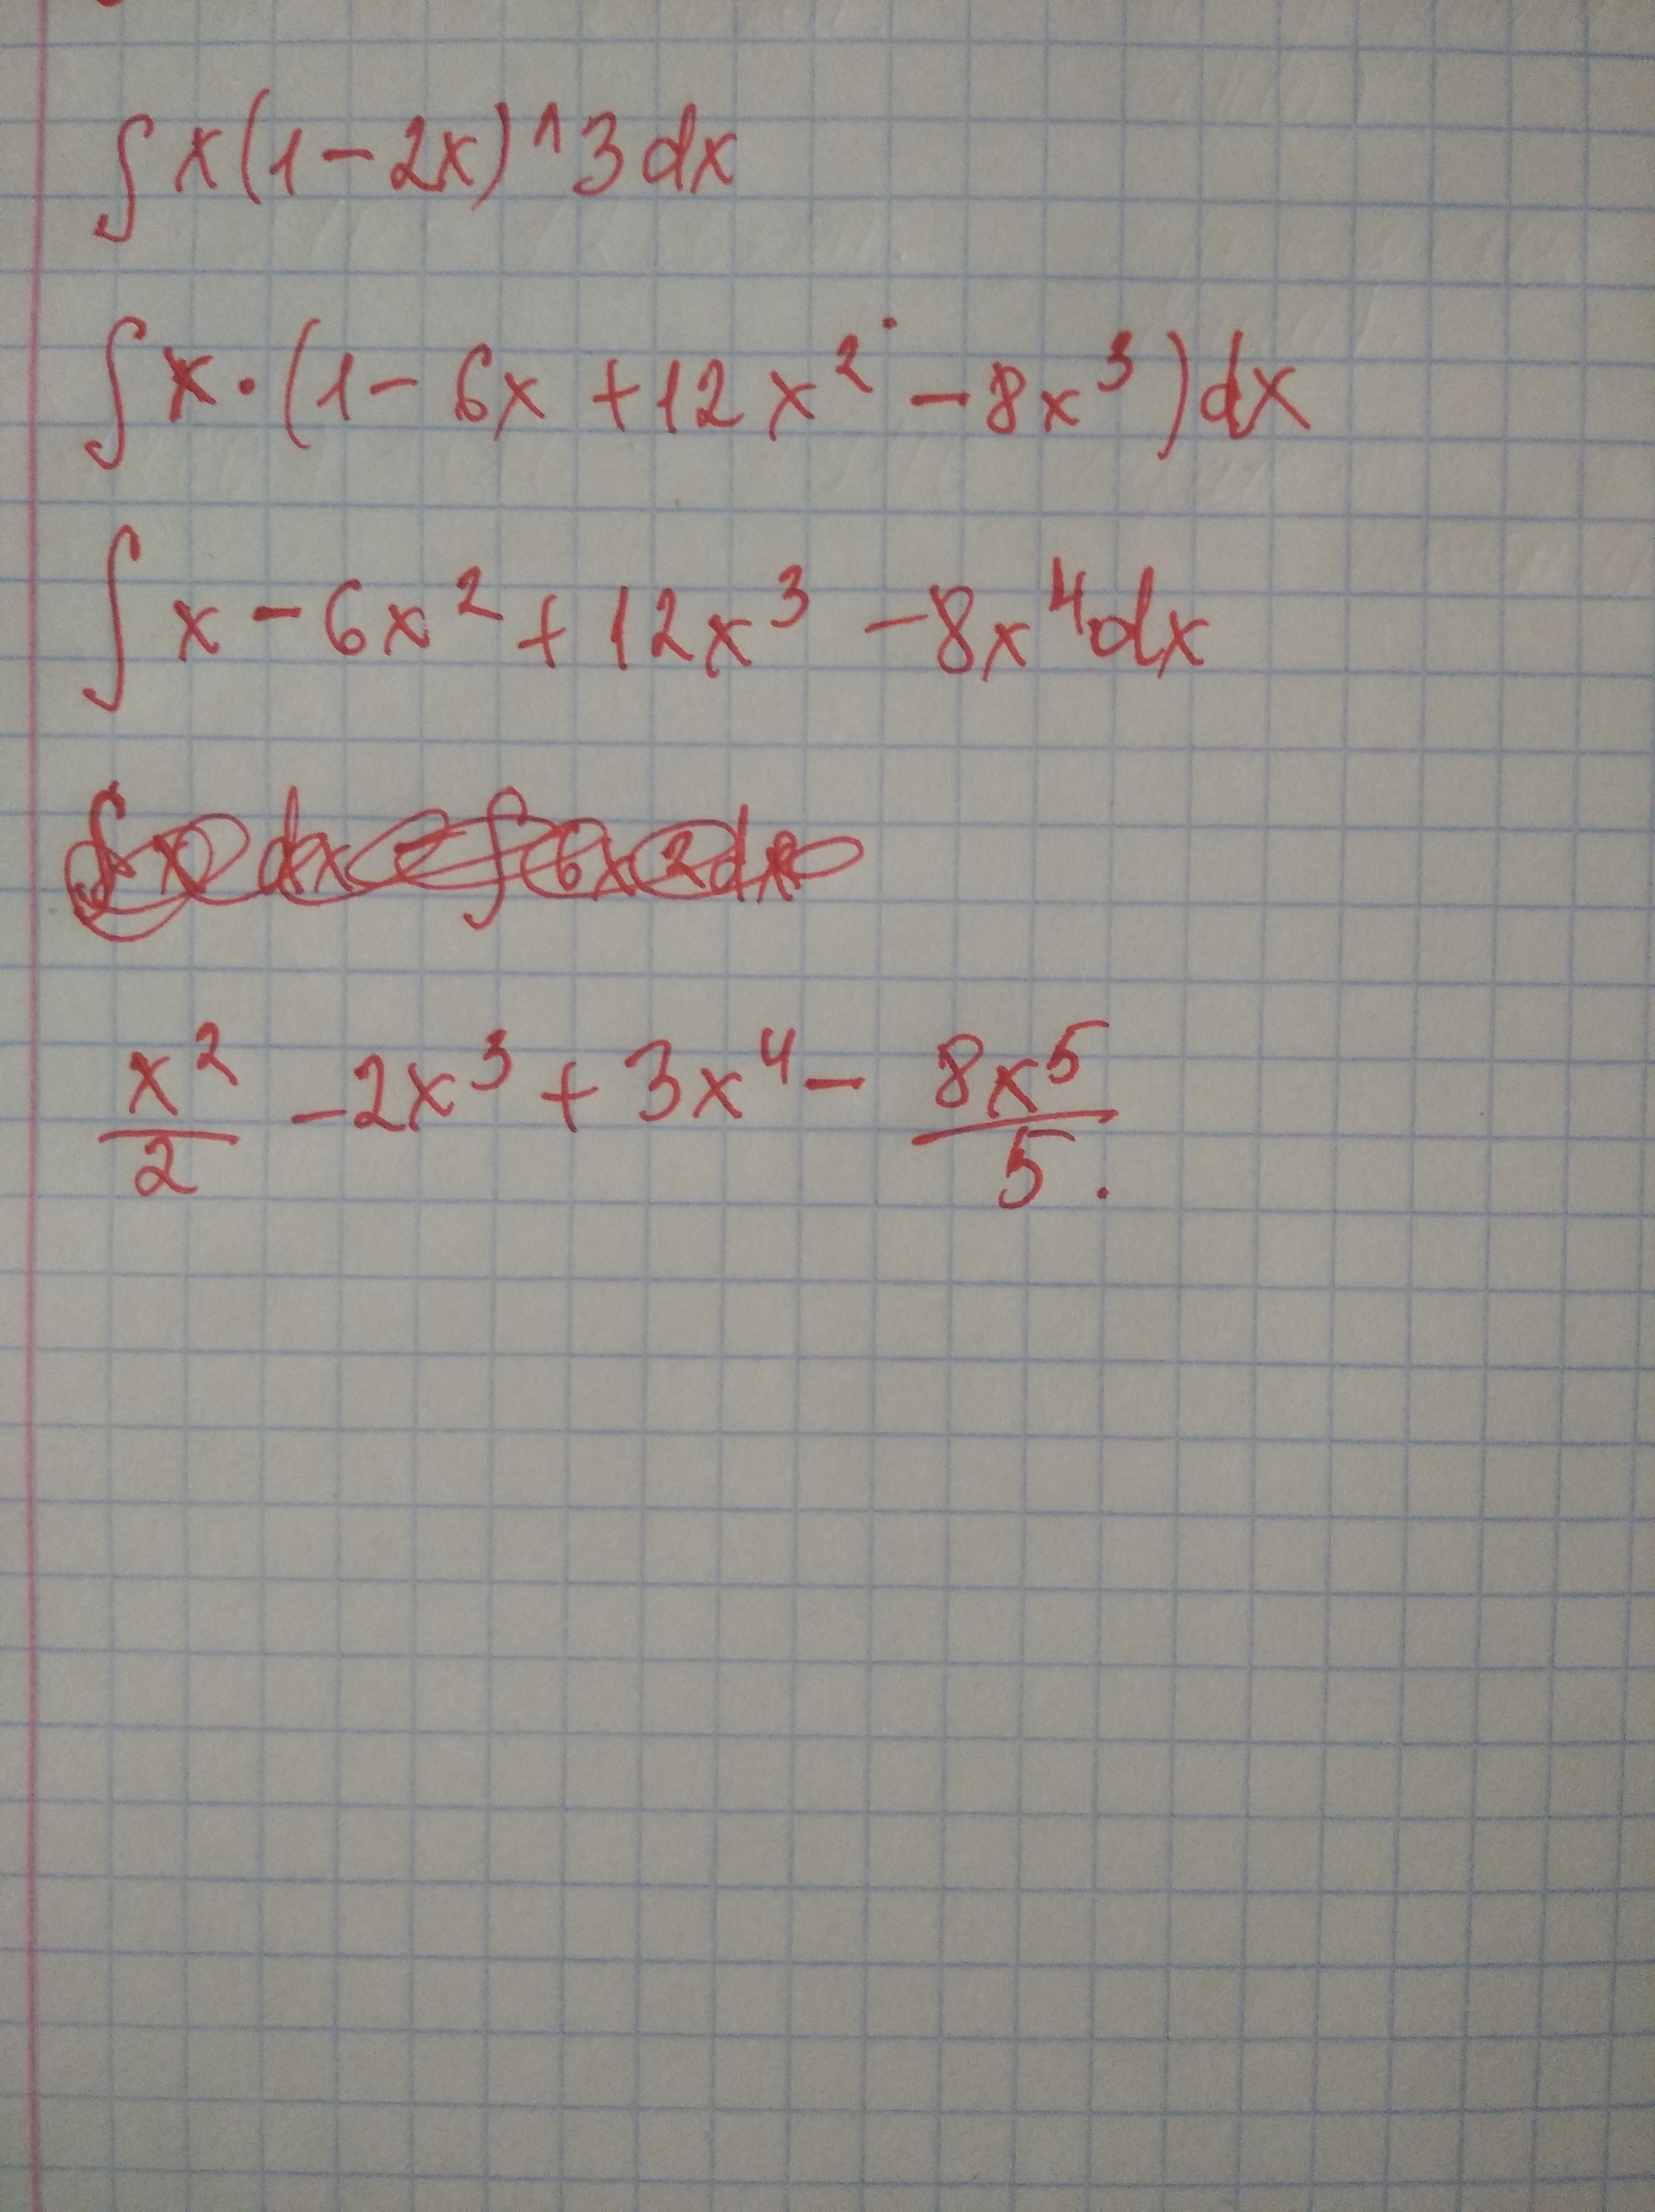 ∫ x(1-2x)^3dx
∫ x·(1-6x+12x²-8x³)dx
∫ x-6x²+12x³-8x⁴dx
x²/2 -2x³+3x⁴- 8x⁵/5.